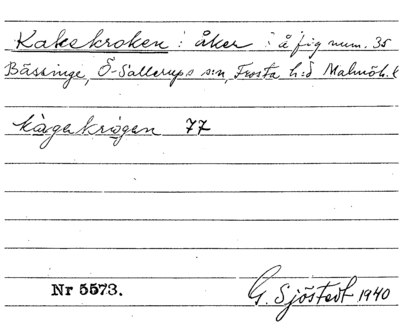 Kakekroken : åker : å fig num. 35
Bässinge, Ö-Sallerups s:n, Frosta h:d Malmöh. l
kågakrogen 77
Nr 5573.
G. Sjöstedt 1940